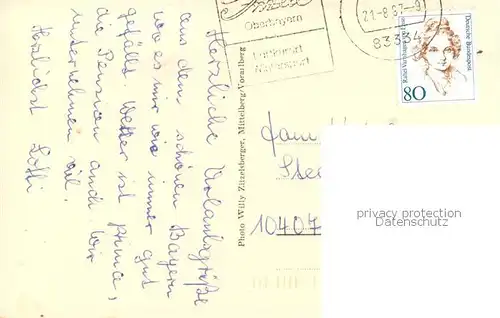 Oberbayern
Luftkurort
21-8.97-9
83334
Deutsche Bundespost
80
Herzliche Urlaubsgrüße
aus dem schönen Bayern
wo es mir wie immer gut
gefällt. Wetter ist prima,
die Pension auch. Wir
unternehmen viel.
Herzlichst Lotti
Photo Willy Zitzelsberger, Mittelberg/Vorarlberg
10407
privacy protection
Datenschutz